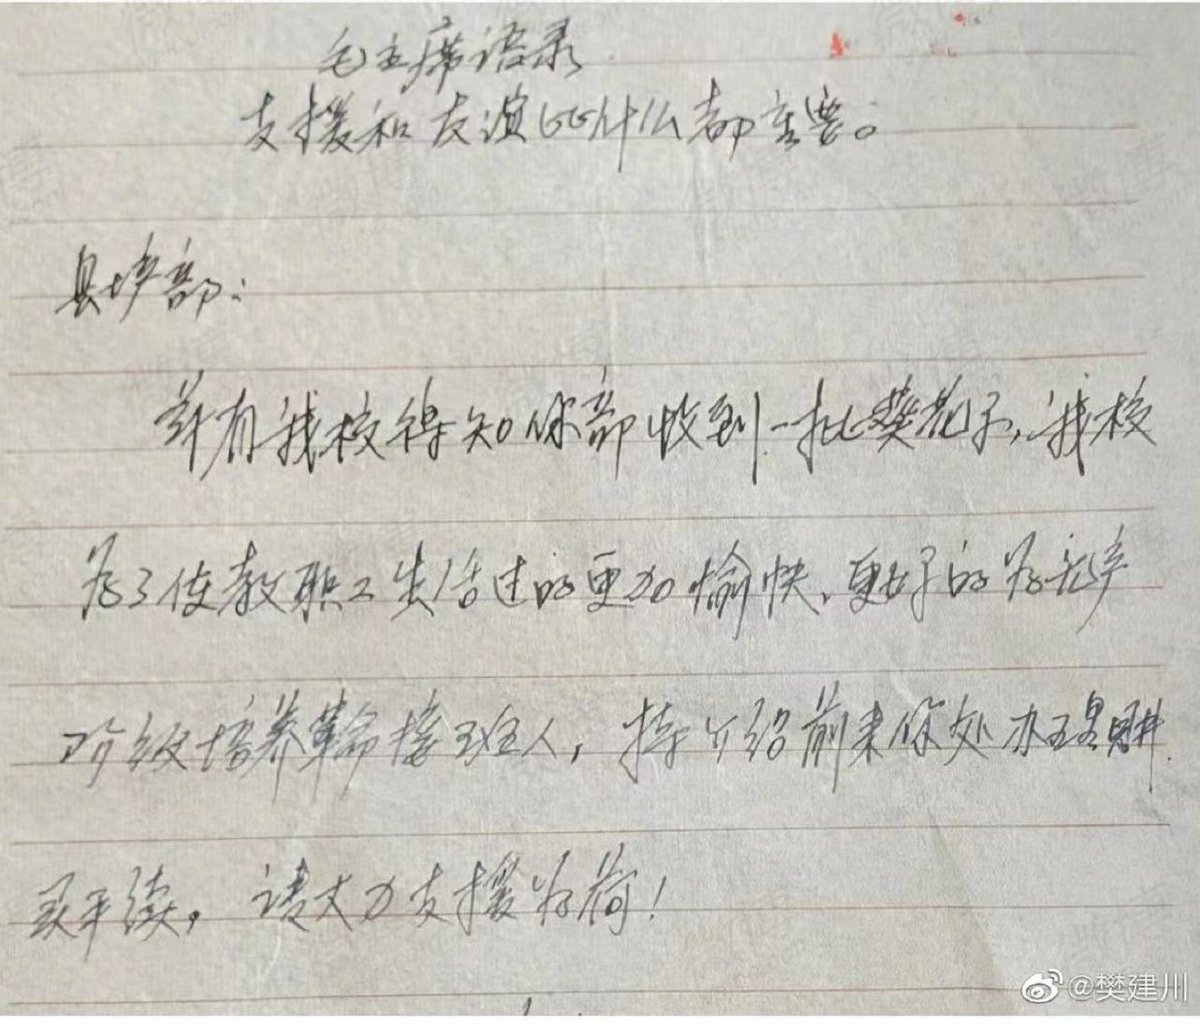 毛主席语录
支援和友谊比什么都重要。
县埣部:
兹有我校得知你部收到一批葵花子,我校
为了使教职工生活过的更加愉快、更好的为无产
阶级培养革命接班人,特介绍前来你处办理购
买手续,请大力支援为荷!
@樊建川